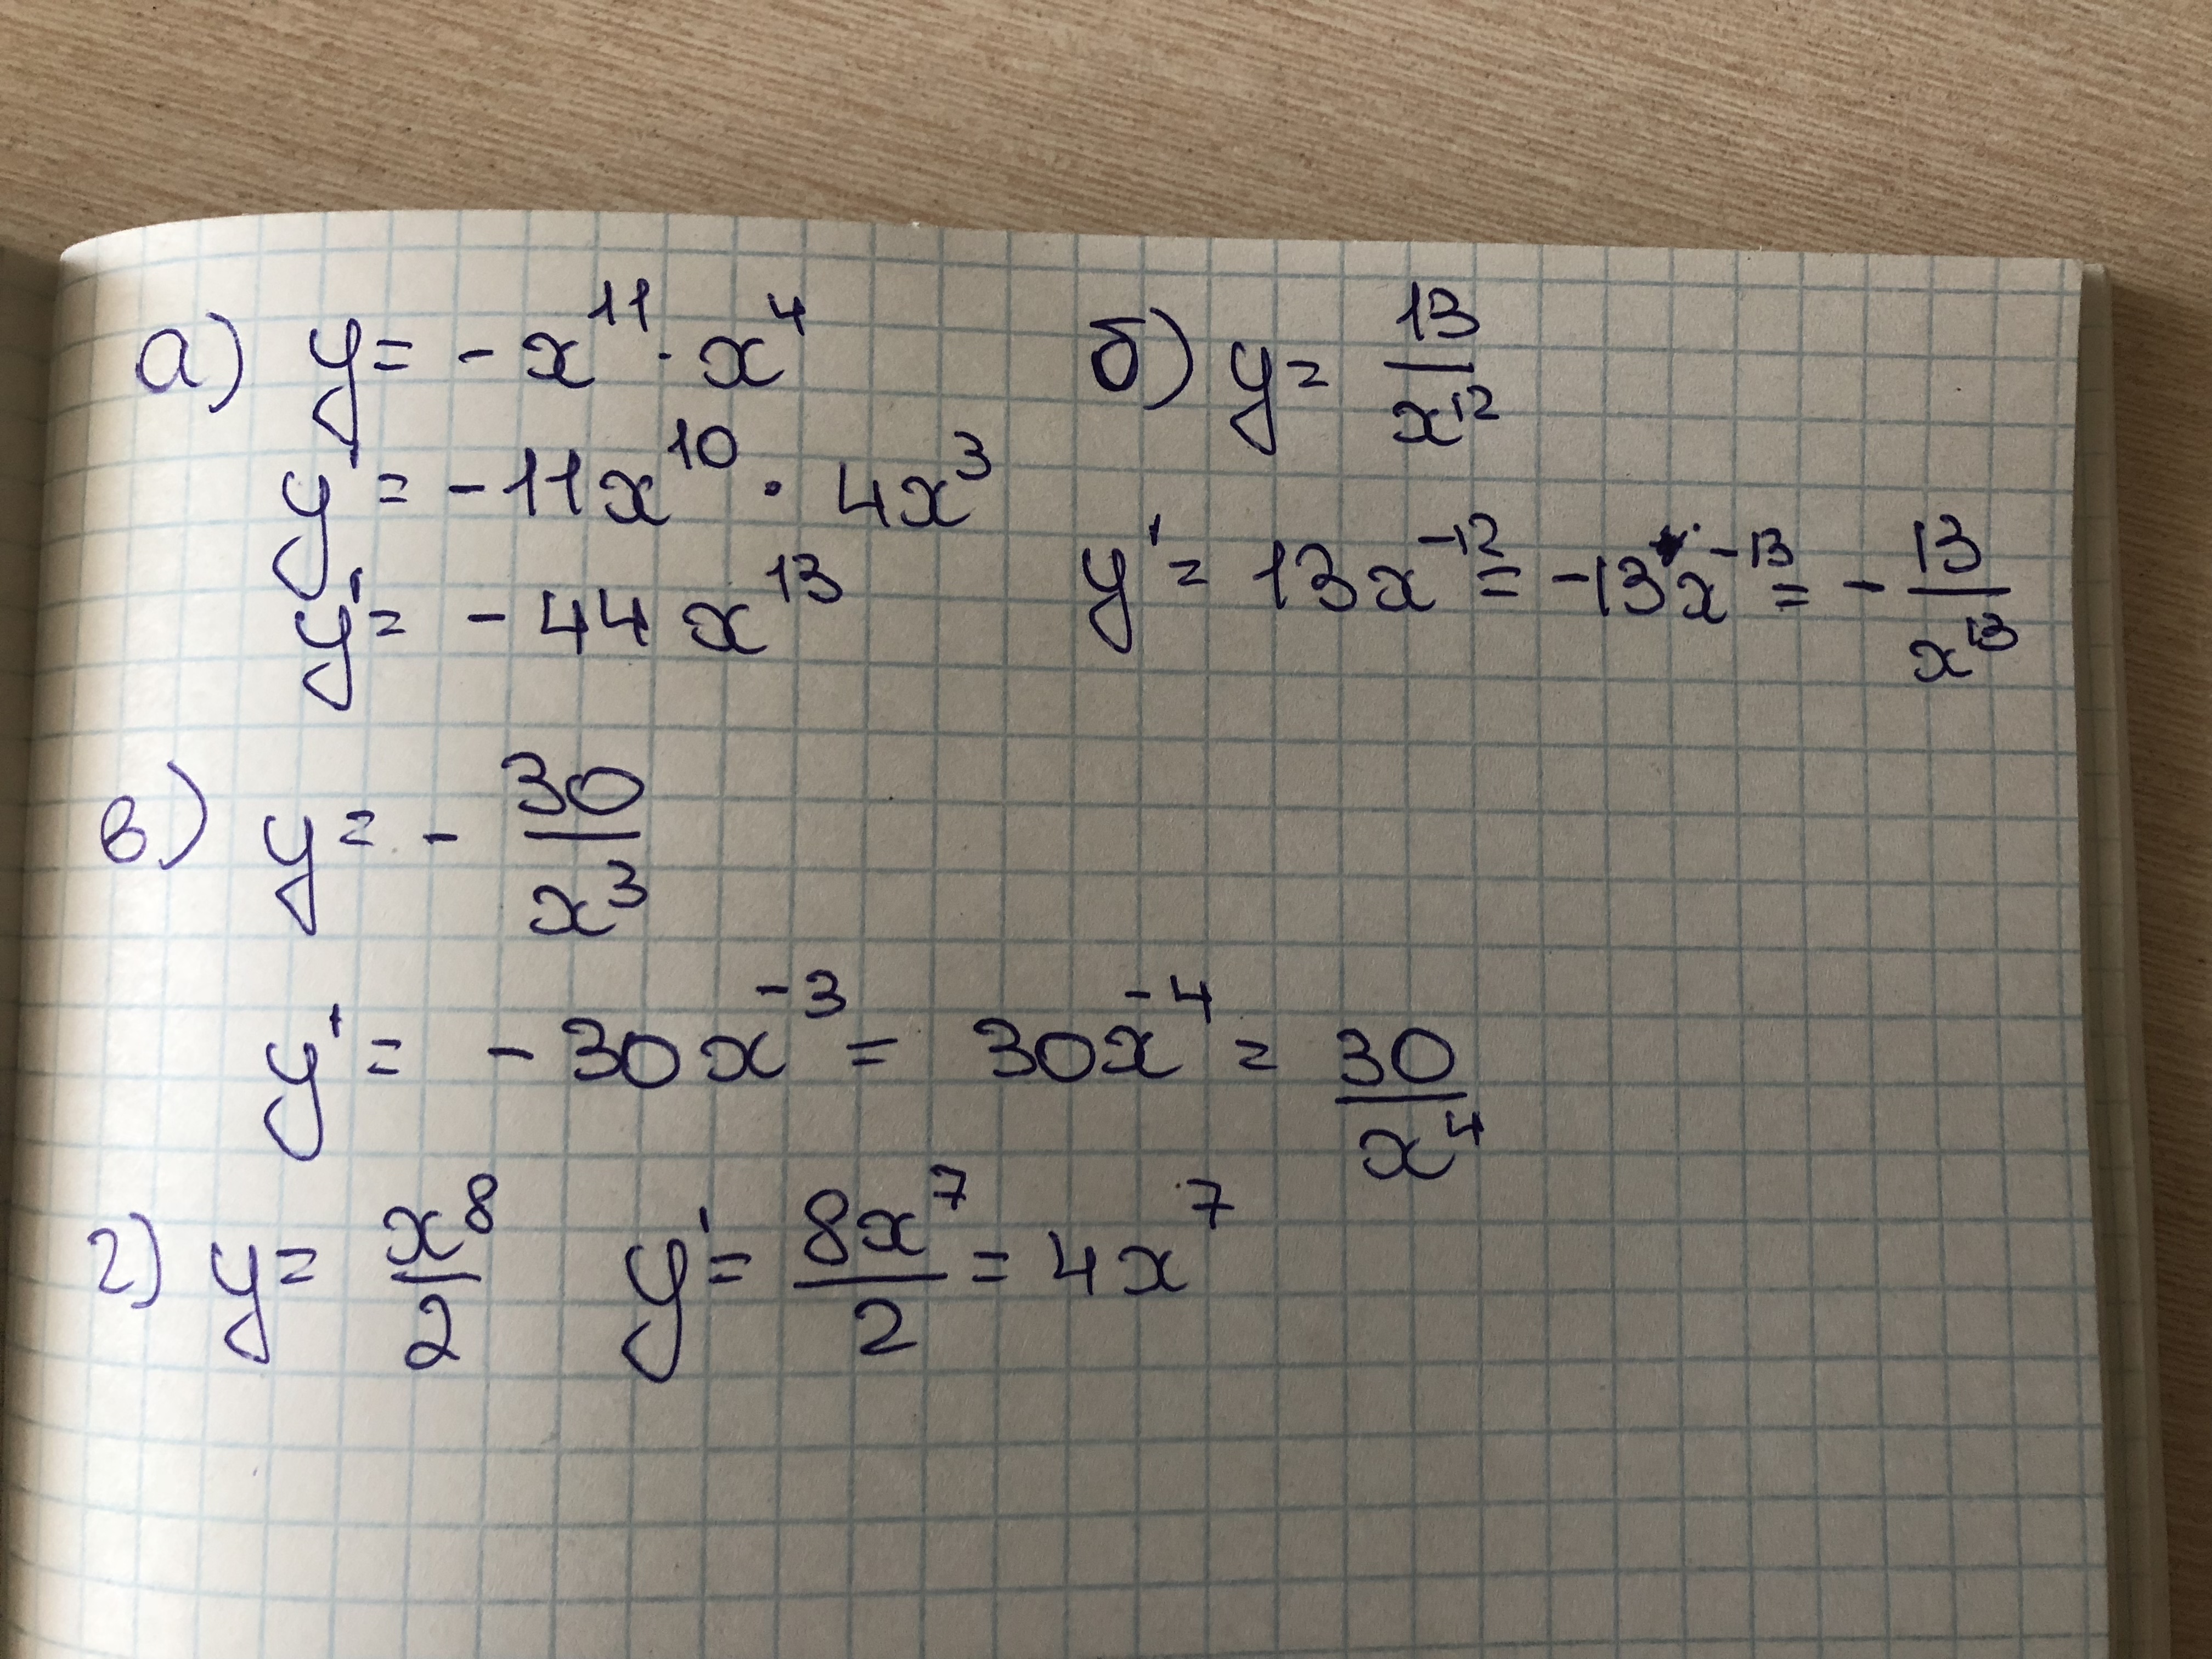 а) y = -x¹¹ · x⁴
y' = -11x¹⁰ · 4x³
y' = -44x¹³
б) y = 13/x¹²
y' = 13x⁻¹² = -13x⁻¹³ = -13/x¹³
в) y = -30/x³
y' = -30x⁻³ = 30x⁻⁴ = 30/x⁴
г) y = x⁸/2 y' = 8x⁷/2 = 4x⁷